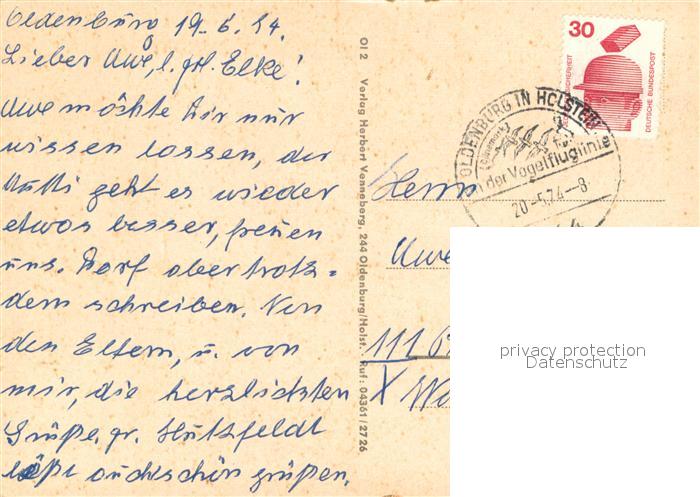 Oldenburg 19.5.74.
Lieber Uwe, l. gr. Elke!
Uwe möchte Dir nur
wissen lassen, der
Mutti geht es wieder
etwas besser, freuen
uns. Darf aber trotz-
dem schreiben. Von
den Eltern, u. von
mir, die herzlichsten
Grüße, gr. Hutzfeldt
läßt auch schön grüßen.
Ol 2 Verlag Herbert Venneberg, 244 Oldenburg/Holst. - Ruf: 04361/2726
30
DEUTSCHE BUNDESPOST
OLDENBURG IN HOLSTEIN
an der Vogelfluglinie
20.-5.74.-8
Herrn
Uwe
111
X
privacy protection
Datenschutz